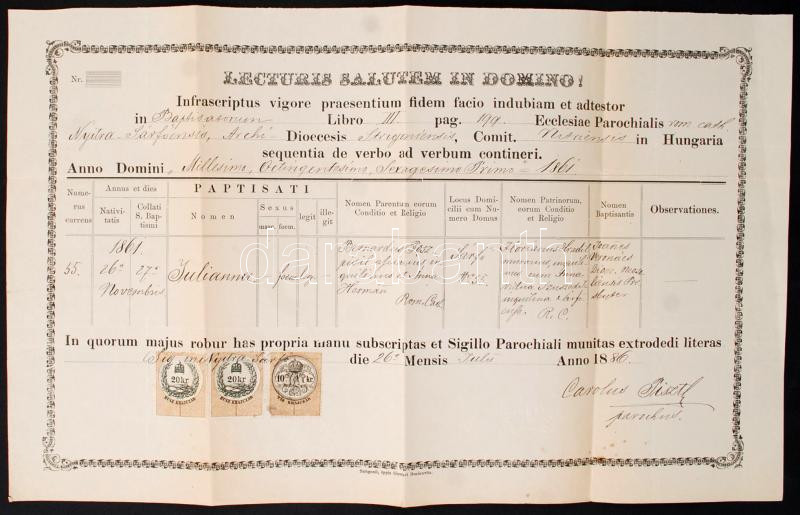 Nr.
LECTURIS SALUTEM IN DOMINO!
Infrascriptus vigore praesentium fidem facio indubiam et adtestor
in Baptisatorum Libro III. pag. 199. Ecclesiae Parochialis rom. cath.
Nyitra-Sárfőensis, Archi- Dioecesis Strigoniensis, Comit. Nitriensis in Hungaria
sequentia de verbo ad verbum contineri.
Anno Domini, Millesimo, Octingentesimo, Sexagesimo Primo - 1861.
Numerus currens
Annus et dies
Nativitatis
Collati S. Baptismi
PAPTISATI
Nomen
Sexus
masc.
foem.
legit
illegit
Nomen Parentum eorum Conditio et Religio
Locus Domicilii cum Numero Domus
Nomen Patrinorum, eorum Conditio et Religio
Nomen Baptisantis
Observationes.
1861.
55.
26a
27a
Novembris
Julianna
foem
leg
Bernardus
Anna
Herman
Rom. Cath.
Sárfő
Nro 55
cum Anna
R. C.
In quorum majus robur has propria manu subscriptas et Sigillo Parochiali munitas extrodedi literas
Sig. in Nyitra-Sárfő die 26a Mensis Julii Anno 1886.
20 kr
20 kr
10 kr
HUSZ KRAJCZÁR
HUSZ KRAJCZÁR
TIZ KRAJCZÁR
Carolus
parochus.
darabanth